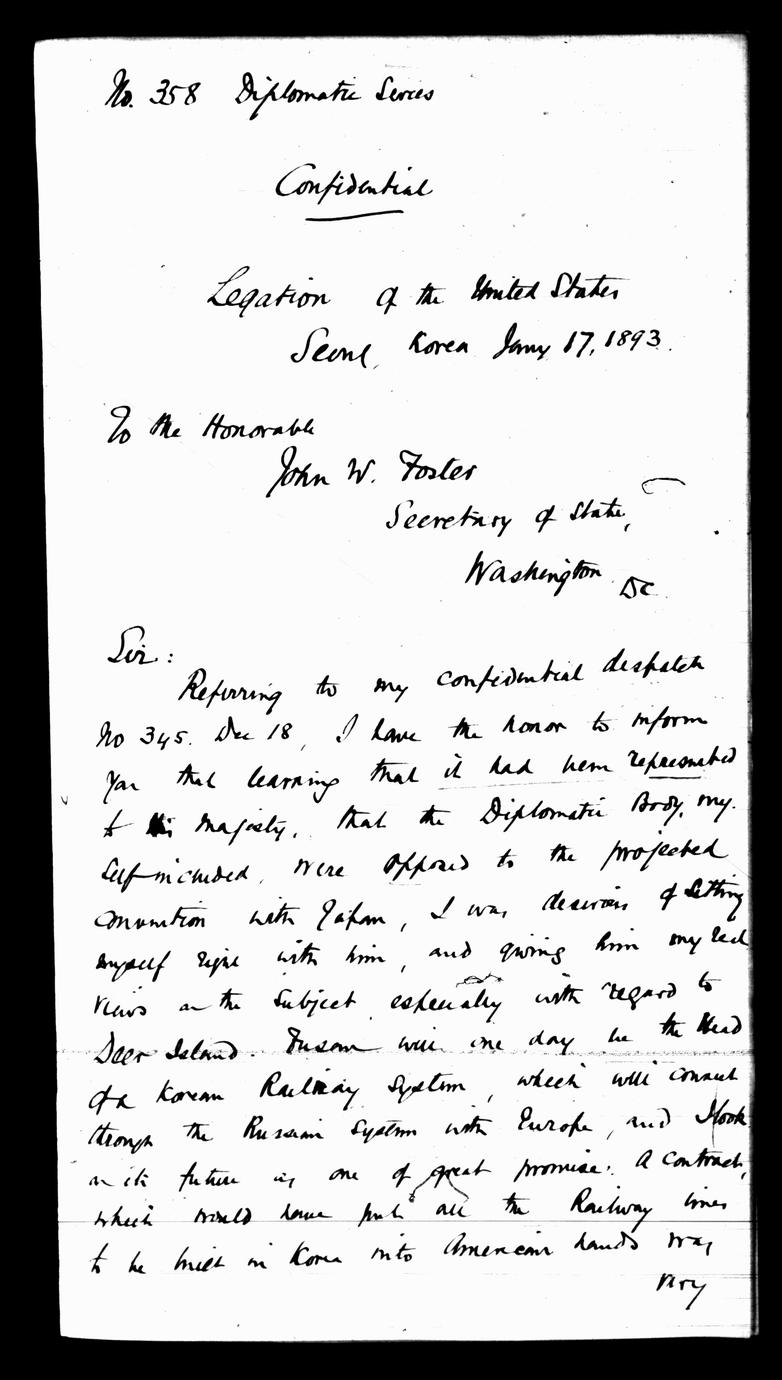 No. 358 Diplomatic Series
Confidential
Legation of the United States
Seoul, Korea Jany 17, 1893.
To the Honorable
John W. Foster
Secretary of State,
Washington DC
Sir:
Referring to my confidential despatch
No 345. Dec 18, I have the honor to inform
you that learning that it had been represented
to His Majesty, that the Diplomatic Body, my-
self included, were opposed to the projected
convention with Japan, I was desirous of setting
myself right with him, and giving him my real
views on the subject especially with regard to
Deer Island. Fusan will one day be the Head
of a Korean Railway System, which will connect
through the Russian System with Europe, and I look
on its future as one of great promise. A contract,
which would have put all the Railway lines
to be built in Korea into American hands was
very